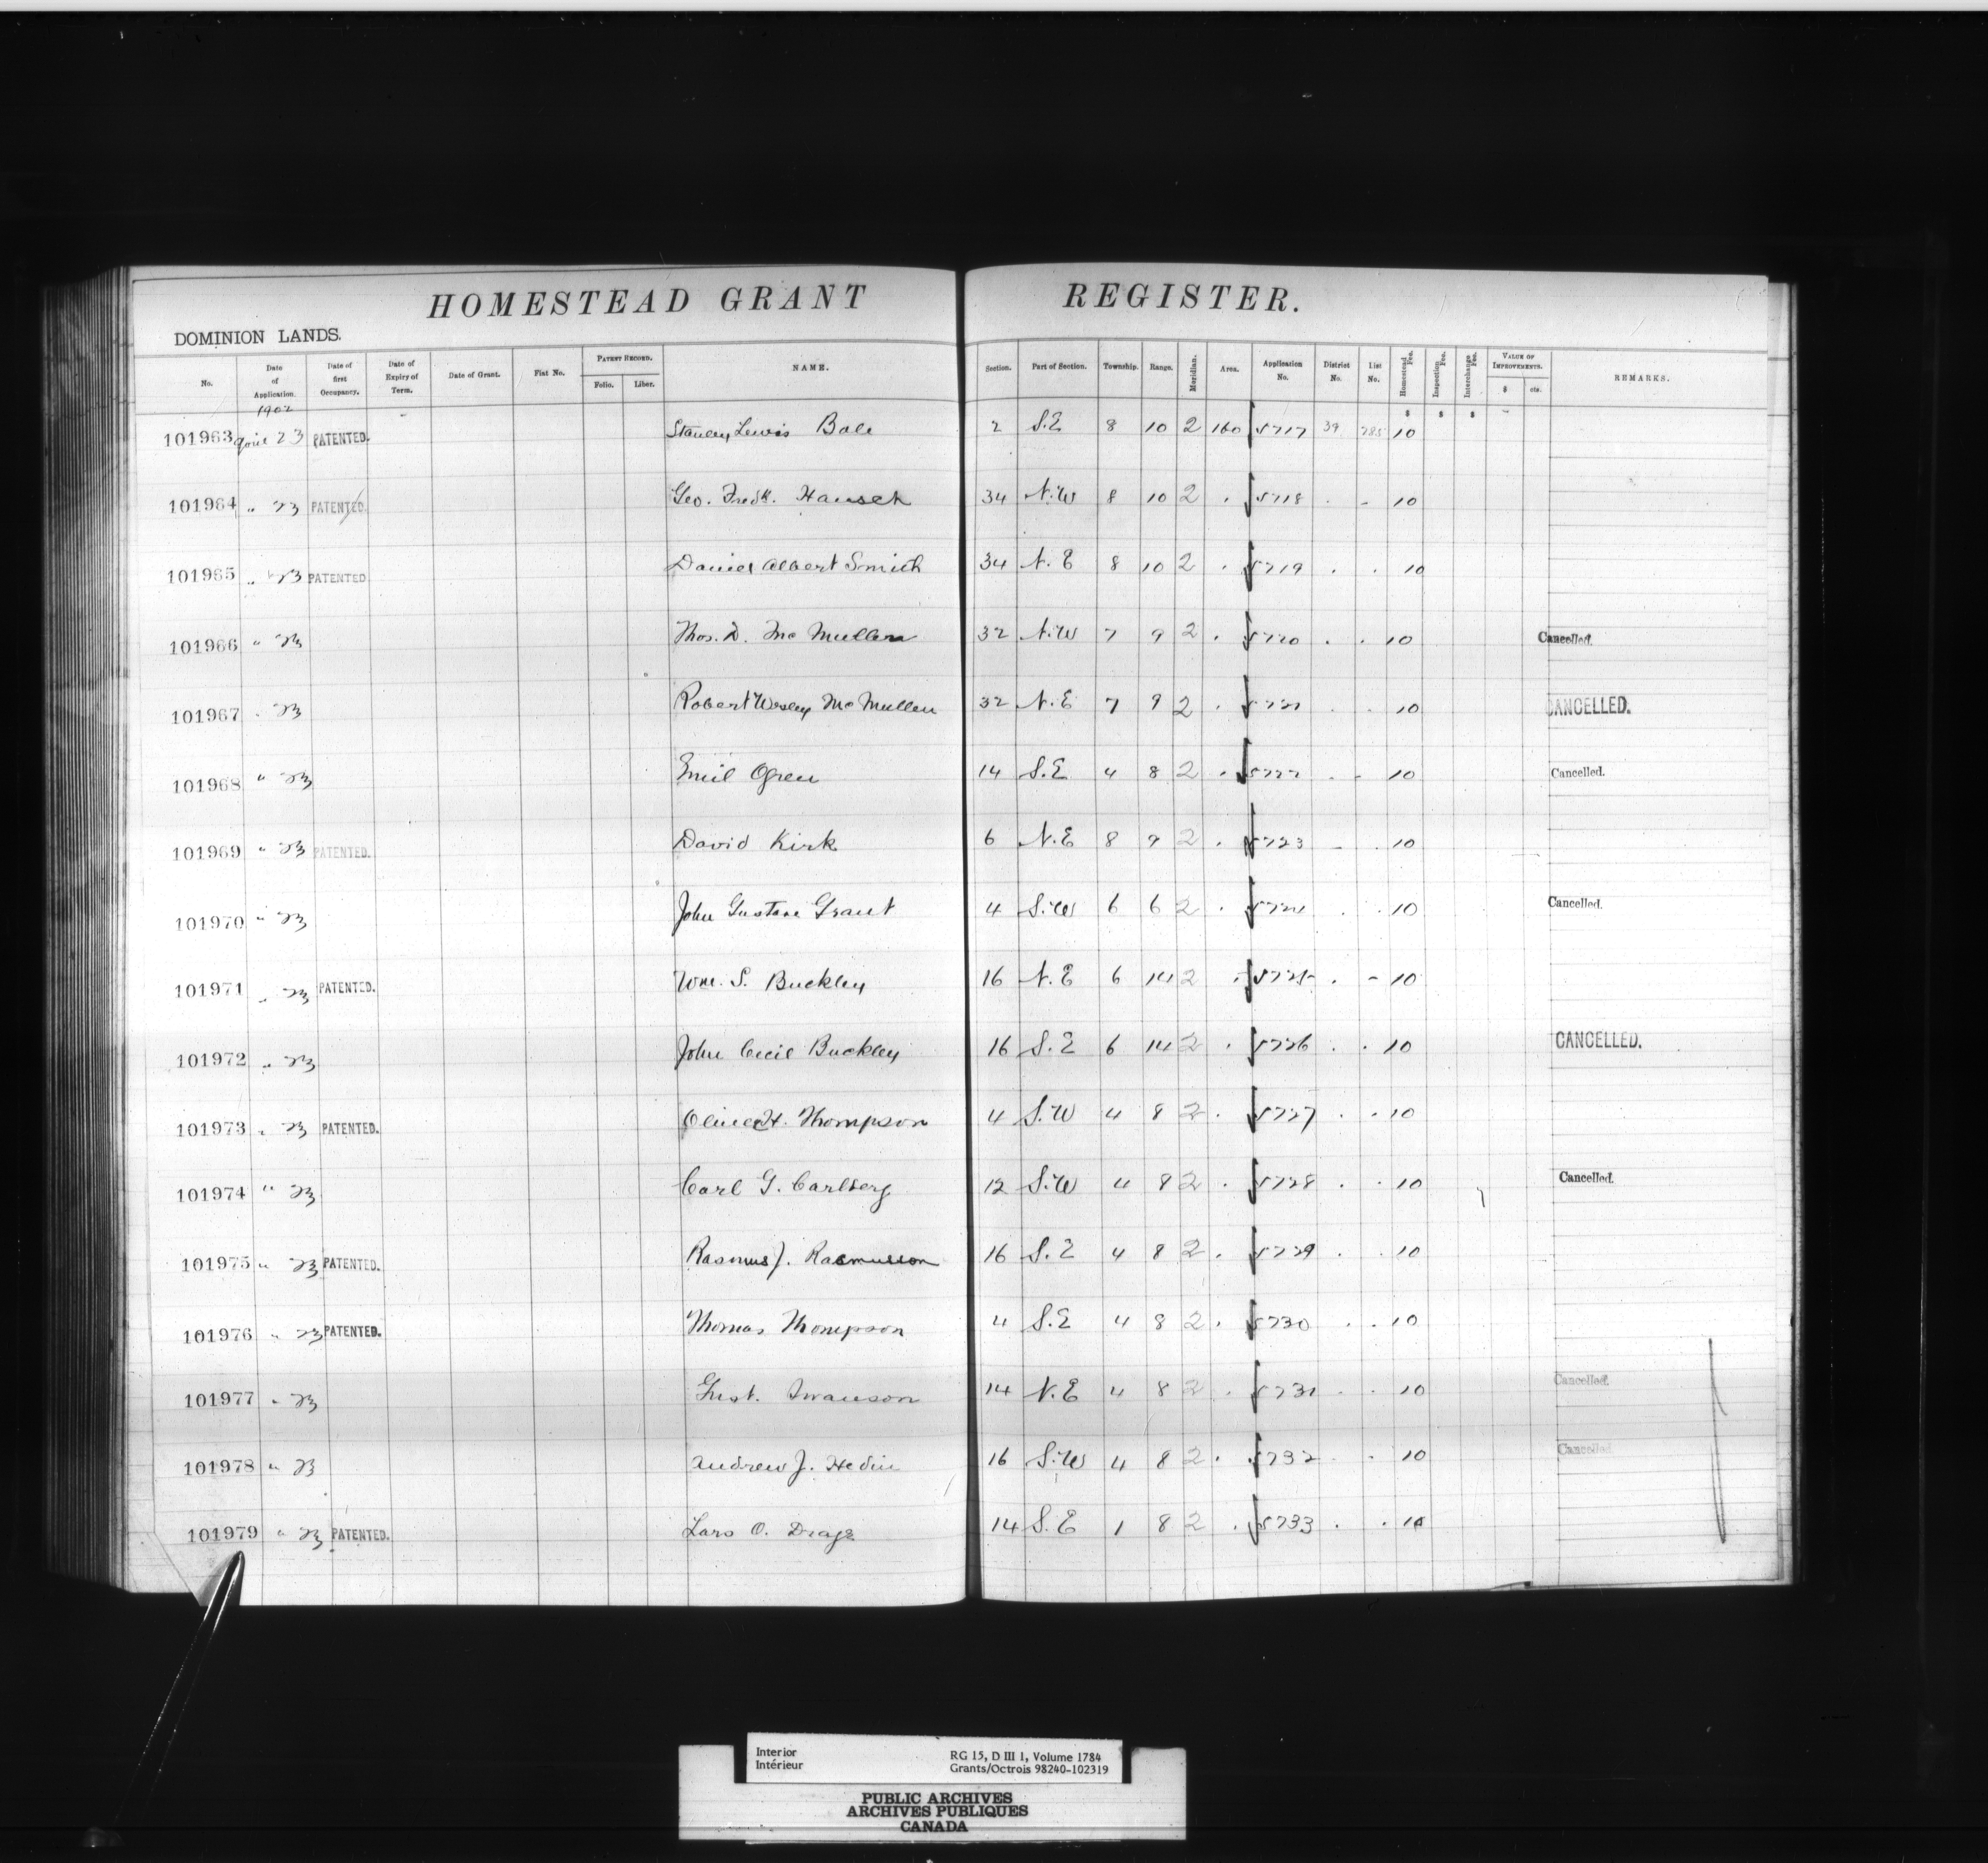 HOMESTEAD GRANT REGISTER.
DOMINION LANDS.
No. Date of Application. Date of first Occupancy. Date of Expiry of Term. Date of Grant. Fiat No. PATENT RECORD. Folio. Liber. NAME. Section. Part of Section. Township. Range. Meridian. Area. Application No. District No. List No. Homestead Fee. Inspection Fee. Interchange Fee. VALUE OF IMPROVEMENTS. $ cts. REMARKS.
1902 $ $ $
101963 April 23 PATENTED. Stanley Lewis Bole 2 S.E 8 10 2 160 5717 39 785 10
101964 " 23 PATENTED. Geo. Fredk. Hausch 34 N.W 8 10 2 . 5718 . - 10
101965 " 23 PATENTED Daniel Albert Smith 34 N.E 8 10 2 . 5719 . . 10
101966 " 23 Thos. D. McMullen 32 N.W 7 9 2 . 5720 . . 10 Cancelled.
101967 " 23 Robert Wesley McMullen 32 N.E 7 9 2 . 5721 . . 10 CANCELLED.
101968 " 23 Emil Ogren 14 S.E 4 8 2 . 5722 . - 10 Cancelled.
101969 " 23 PATENTED. David Kirk 6 N.E 8 9 2 . 5723 - . 10
101970 " 23 John Gustave Grant 4 S.W 6 6 2 . 5724 . . 10 Cancelled.
101971 " 23 PATENTED. Wm. S. Buckley 16 N.E 6 14 2 . 5725 . - 10
101972 " 23 John Cecil Buckley 16 S.E 6 14 2 . 5726 . . 10 CANCELLED.
101973 " 23 PATENTED. Oliver H. Thompson 4 S.W 4 8 2 . 5727 . . 10
101974 " 23 Carl G. Carlberg 12 S.W 4 8 2 . 5728 . . 10 Cancelled.
101975 " 23 PATENTED. Rasmus J. Rasmusson 16 S.E 4 8 2 . 5729 . . 10
101976 " 23 PATENTED. Thomas Thompson 4 S.E 4 8 2 . 5730 . . 10
101977 " 23 Gust. Swanson 14 N.E 4 8 2 . 5731 . . 10 Cancelled.
101978 " 23 Andrew J. Hedin 16 S.W 4 8 2 . 5732 . . 10 Cancelled
101979 " 23 PATENTED. Lars O. 14 S.E 1 8 2 . 5733 . . 10
Interior RG 15, D III 1, Volume 1784
Intérieur Grants/Octrois 98240-102319
PUBLIC ARCHIVES
ARCHIVES PUBLIQUES
CANADA